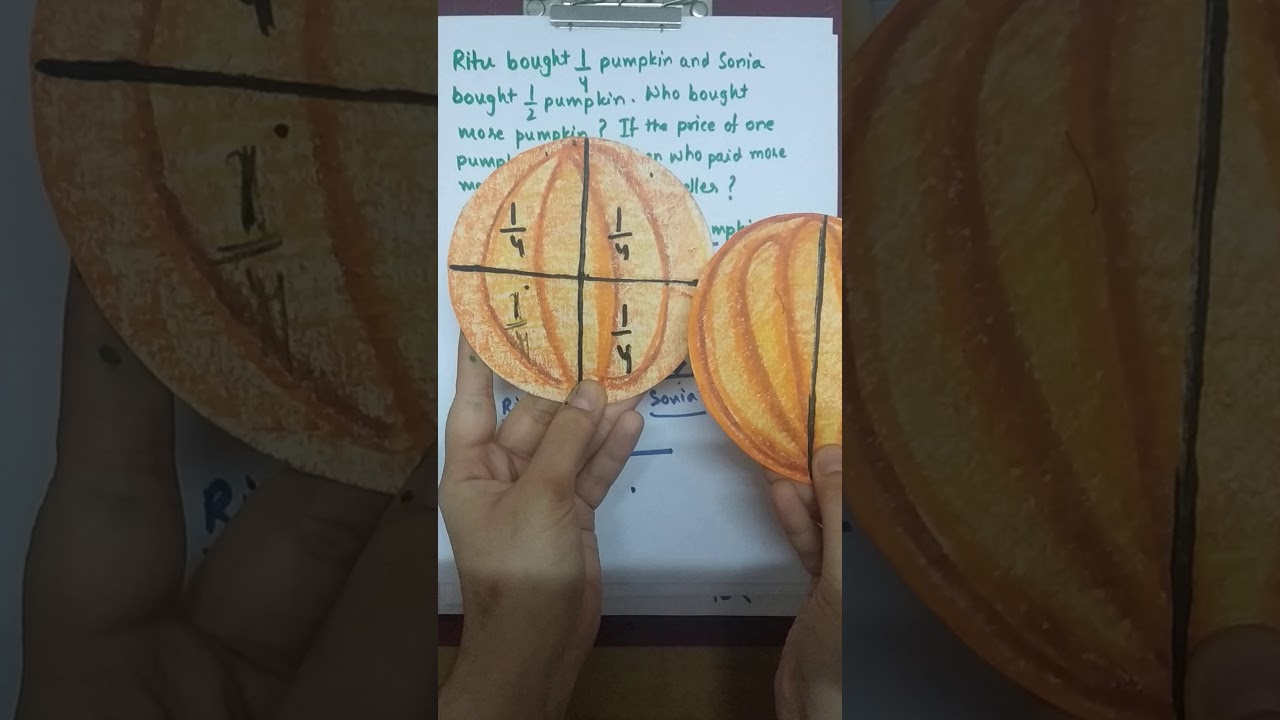 Ritu bought 1/4 pumpkin and Sonia
bought 1/2 pumpkin. Who bought
more pumpkin? If the price of one
who paid more
?
1/4 1/4
1/4 1/4
Sonia